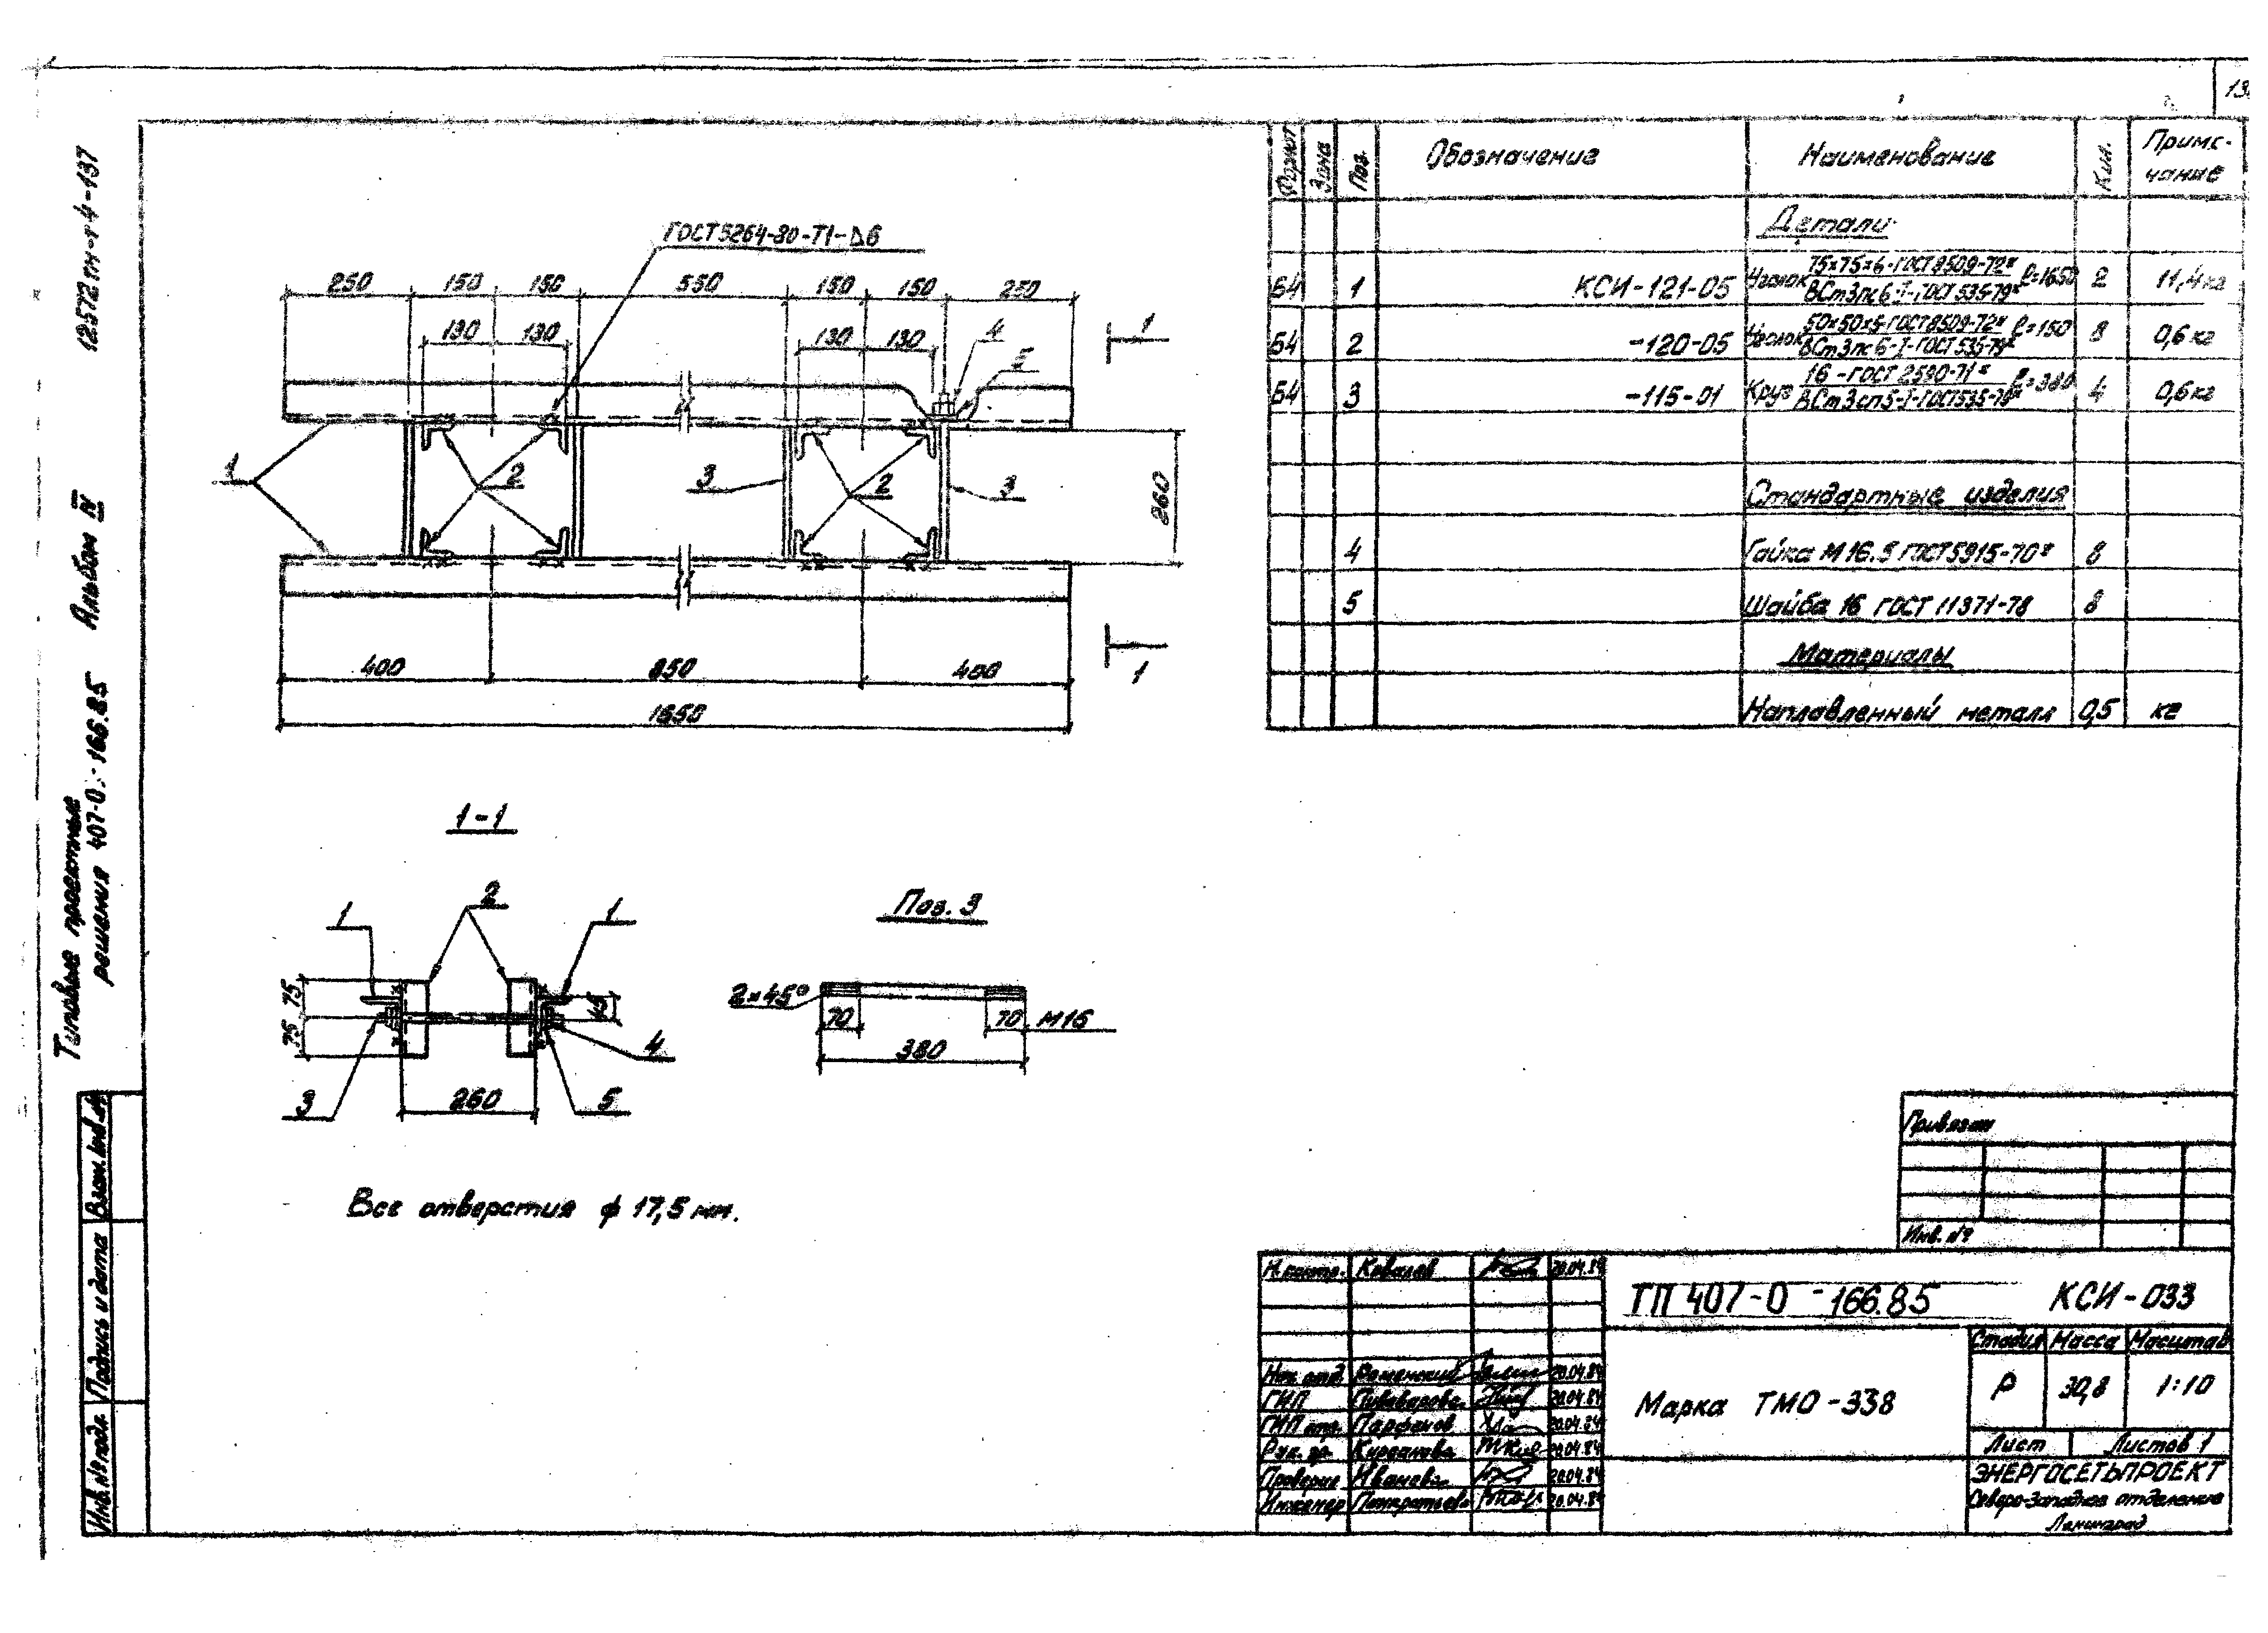 12572тм-т4-137
Альбом IV
Типовые проектные
решения 407-0-166.85
Взам. инв. №
Подпись и дата
Инв. № подл.
ГОСТ 5264-80-Т1-△6
250 150 150 550 150 150 250
130 130 130 130
4
5
1
1
2
3
2
3
260
400 850 400
1650
1
1-1
1 2 1
75
75
45
3 260 5 4
Поз. 3
2×45°
70 70 М16
380
Все отверстия ϕ 17,5 мм.
Формат Зона Поз. Обозначение Наименование Кол. Приме-
чание
Детали
Б4 1 КСИ-121-05 Уголок 75×75×6-ГОСТ 8509-72* ℓ=1650 2 11,4 кг
ВСт3пс6-I-ГОСТ 535-79*
Б4 2 -120-05 Уголок 50×50×5-ГОСТ 8509-72* ℓ=150 8 0,6 кг
ВСт3пс6-I-ГОСТ 535-79*
Б4 3 -115-01 Круг 16-ГОСТ 2590-71* ℓ=380 4 0,6 кг
ВСт3сп5-I-ГОСТ 535-79*
Стандартные изделия
4 Гайка М16.5 ГОСТ 5915-70* 8
5 Шайба 16 ГОСТ 11371-78 8
Материалы
Наплавленный металл 0,5 кг
Привязан
Инв. №
Н. контр. Ковалев 20.04.84
Нач. отд. Роменский 20.04.84
ГИП Пивоварова 20.04.84
ГИП стр. Парфенов 20.04.84
Рук. гр. Курсанова 20.04.84
Проверил Иванова 20.04.84
Инженер Панкратьева 20.04.84
ТП 407-0-166.85 КСИ-033
Марка ТМО-338
Стадия Масса Масштаб
Р 30,8 1:10
Лист Листов 1
ЭНЕРГОСЕТЬПРОЕКТ
Северо-Западное отделение
Ленинград